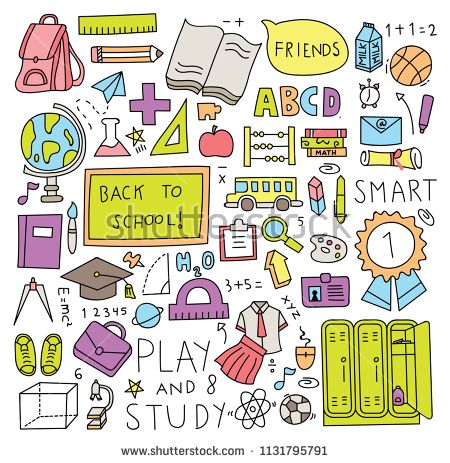 FRIENDS
MILK
MILK
1+1=2
ABCD
MATH
@
BACK TO
SCHOOL!
SMART
5
1
H₂O
3+5=
E=mc²
1 2 3 4 5
XYZ
PLAY
AND 8
STUDY
6
shutterstock
www.shutterstock.com · 1131795791